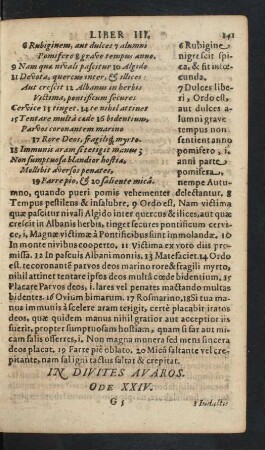 LIBER III. 141
6 Rubiginem, aut dulces 7 alumni
Pomifero 8 grave tempus anno.
9 Nam quæ nivali pascitur 10 Algido
11 Devota, quercus inter, & ilices
Aut crescit 12 Albanis in herbis
Victima, pontificum secures
Cervice 13 tinget. 14 te nihil attinet
15 Tentare multâ cæde 16 bidentium,
Parvos coronantem marino
17 Rore Deos, fragilíq; myrto.
18 Immunis aram si tetigit manus;
Non sumptuosa blandior hostia,
Mollibit aversos penates,
19 Farre pio, & 20 saliente micâ.
6 Rubigine
nigrescit spi
ca, & fit infœ
cunda.
7 Dulces libe
ri, Ordo est,
aut dulces a
lumni grave
tempus non
sentient anno
pomifero, i.
anni parte
pomifera,
nempe Autu-
mno, quando pueri pomis vehementer delectantur. 8
Tempus pestilens & insalubre. 9 Ordo est, Nam victima
quæ pascitur nivali Algido inter quercus & ilices, aut quæ
crescit in Albanis herbis, tinget secures pontificum cervi-
ce, i, Magnæ victimæ à Pontificibus sunt immolandæ, 10
In monte nivibus cooperto, 11 Victima ex voto diis pro-
missa. 12 In pascuis Albani montis. 13 Matefaciet. 14 Ordo
est. te coronantem parvos deos marino rore & fragili myrto,
nihil attinet tentare ipsos deos multâ cæde bidentium, 15
Placare Parvos deos, i. lares vel penates mactando multas
bidentes. 16 Ovium bimarum. 17 Rosmarino. 18 Si tua ma-
nus immunis à scelere aram tetigit, certè placabit iratos
deos, quæ quidem manus nihil gratior aut acceptior iis
fuerit, propter sumptuosam hostiam, quam si far aut mi-
cam salis offerres, i. Non magna munera sed mens sincera
deos placat. 19 Farre piè oblato. 20 Micâ saltante vel cre-
pitante, nam sal igni tactus saltat & crepitat.
IN DIVITES AVAROS.
ODE XXIV.
G 5 1 Intactis